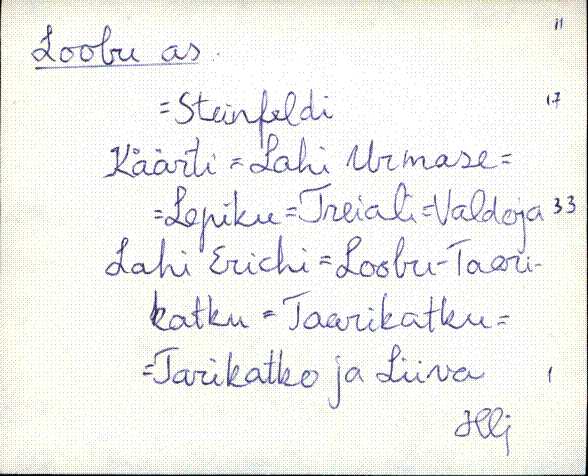 11
Loobu as.
= Steinfeldi 17
Käärti = Lahi Urmase =
= Lepiku = Treiali = Valdoja 33
Lahi Erichi = Loobu-Taari-
katku = Taarikatku =
= Tarikatko ja Liiva 1
Hlj